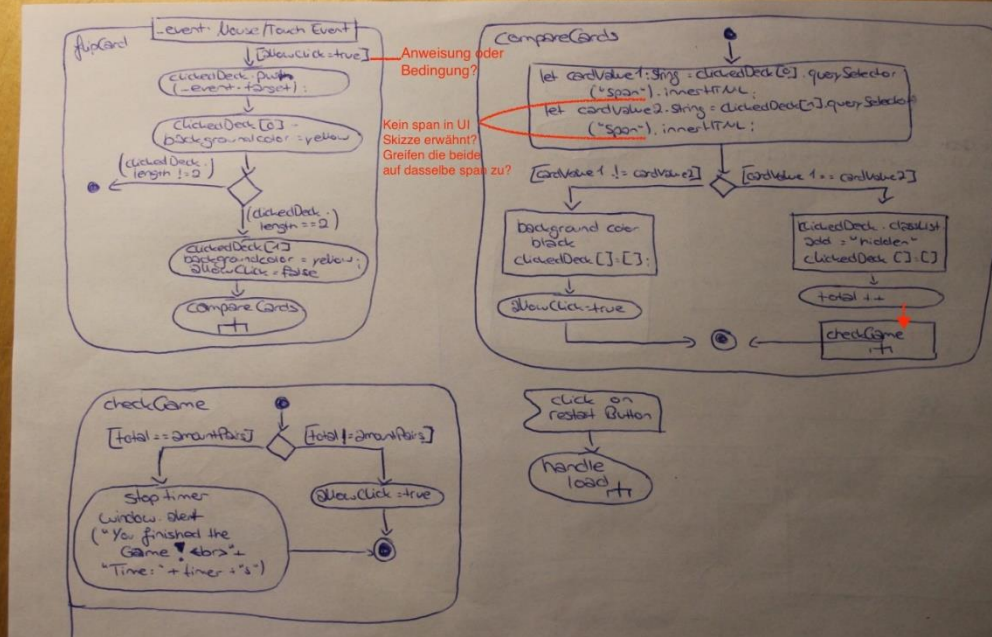 flipCard
_event: Mouse/Touch Event
[allowClick=true]
Anweisung oder
Bedingung?
clickedDeck.push
(_event.target);
clickedDeck[0].
backgroundcolor = yellow
(clickedDeck.
length !=2)
(clickedDeck.
length ==2)
clickedDeck[1]
backgroundcolor = yellow;
allowClick = false
compareCards
Kein span in UI
Skizze erwähnt?
Greifen die beide
auf dasselbe span zu?
compareCards
let cardValue1: String = clickedDeck[0].querySelector
("span").innerHTML;
let cardValue2: String = clickedDeck[1].querySelector
("span").innerHTML;
[cardValue1 != cardValue2]
[cardValue1 == cardValue2]
background color
black
clickedDeck []=[];
allowClick=true
clickedDeck.classList
add = "hidden"
clickedDeck []=[]
total ++
checkGame
checkGame
[total == amountPairs]
[total != amountPairs]
stop timer
window.alert
("You finished the
Game ! <br>"+
"Time:"+ timer +"s")
allowClick=true
click on
restart Button
handle
load